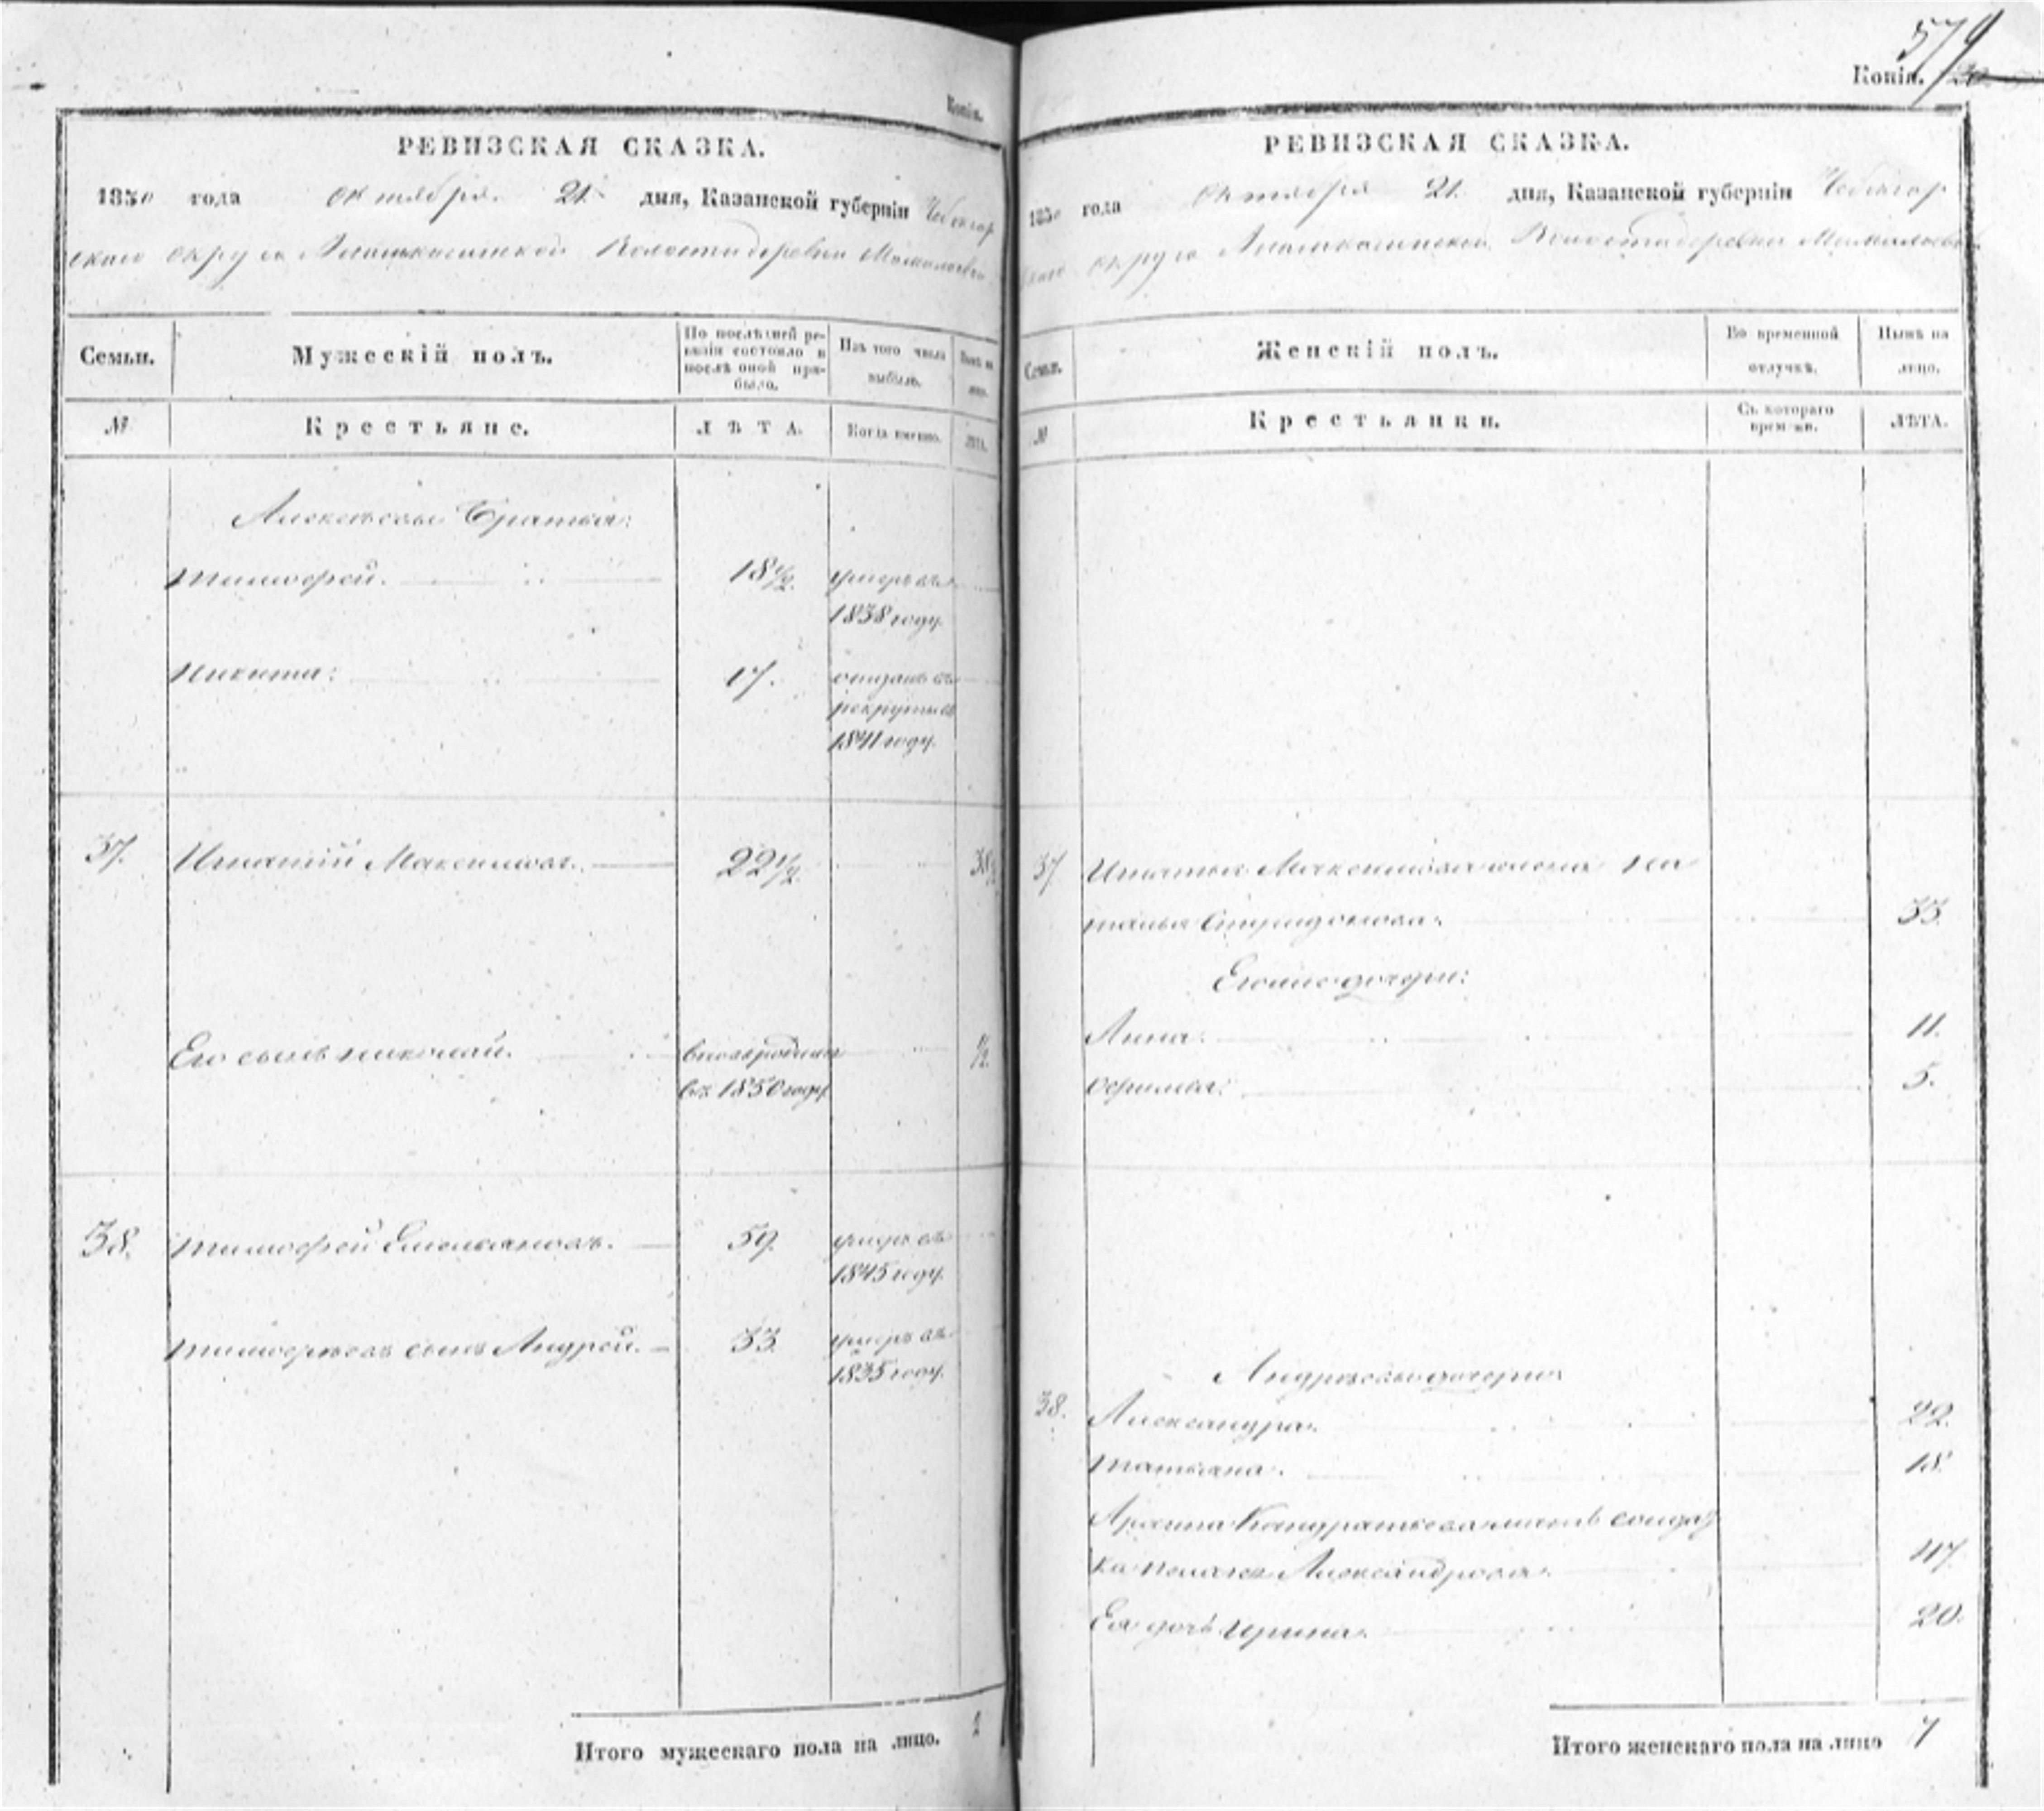 Копія.
РЕВИЗСКАЯ СКАЗКА.
1850 года октября 21 дня, Казанской губерніи Чебоксар
скаго округа волости деревни
Семьи. Мужескій полъ. По послѣдней ре-
визіи состояло и
послѣ оной при-
было. Изъ того числа
выбыло. Нынѣ на
лицо.
№ Крестьяне. ЛѢТА. Когда именно. ЛѢТА.
Алексѣевы братья:
Тимофей. 18 1/2. умеръ въ
1838 году.
Никита: 17. отданъ въ
рекруты въ
1841 году.
37. Игнатій Максимовъ. 22 1/2. 38 1/2
Его сынъ Николай. вновь рожденъ 1/2
въ 1850 году
38. Тимофей Емельяновъ. 59. умеръ въ
1845 году.
Тимофеевъ сынъ Андрей. 33. умеръ въ
1835 году.
Итого мужескаго пола на лицо. 2
57
Копія.
РЕВИЗСКАЯ СКАЗКА.
1850 года октября 21. дня, Казанской губерніи Чебоксар
скаго округа волости деревни
Семьи. Женскій полъ. Во временной
отлучкѣ. Нынѣ на
лицо.
№ Крестьянки. Съ котораго
времени. ЛѢТА.
37 Игнатья Максимова жена На
талья Спиридонова. 33.
Его же дочери:
Анна. 11.
5.
Андреевы дочери
38. Александра. 22.
Татьяна. 18.
Кондратьева солдат
ка Пелагея Александрова. 47.
Ея дочь Ирина. 20.
Итого женскаго пола на лицо 7